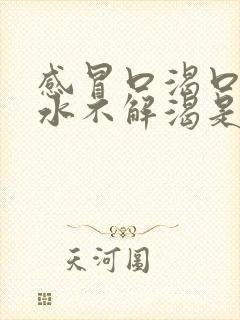 感冒口渴口
水不解渴是
天河图